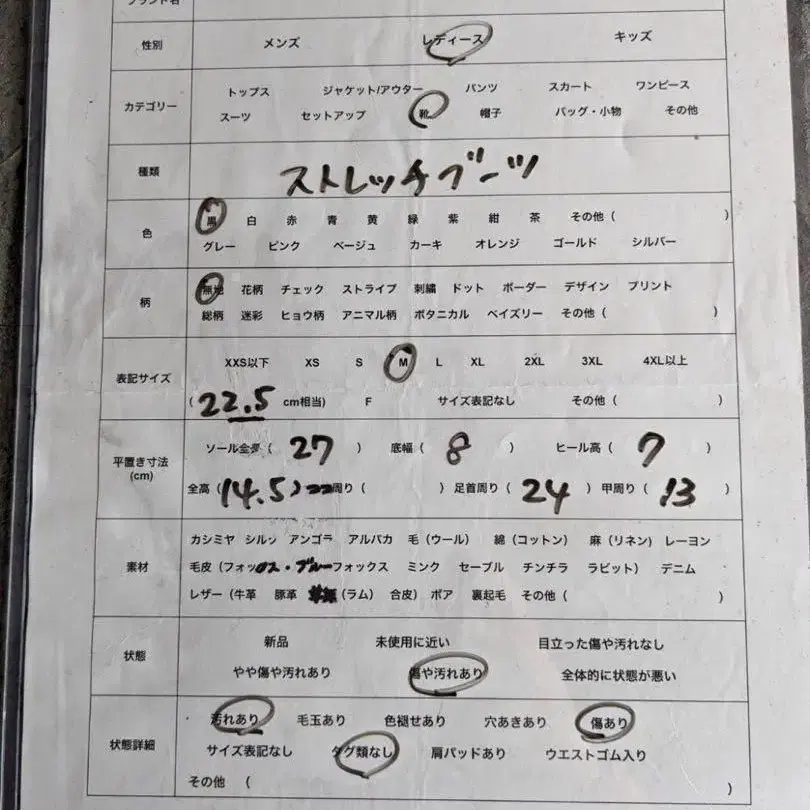 ブランド名
性別 メンズ レディース キッズ
カテゴリー トップス ジャケット/アウター パンツ スカート ワンピース
スーツ セットアップ 靴 帽子 バッグ・小物 その他
種類 ストレッチブーツ
色 黒 白 赤 青 黄 緑 紫 紺 茶 その他 ( )
グレー ピンク ベージュ カーキ オレンジ ゴールド シルバー
柄 無地 花柄 チェック ストライプ 刺繍 ドット ボーダー デザイン プリント
総柄 迷彩 ヒョウ柄 アニマル柄 ボタニカル ペイズリー その他 ( )
表記サイズ XXS以下 XS S M L XL 2XL 3XL 4XL以上
( 22.5 cm相当) F サイズ表記なし その他 ( )
平置き寸法 (cm) ソール全長 ( 27 ) 底幅 ( 8 ) ヒール高 ( 7 )
全高 ( 14.5 ) 周り ( ) 足首周り ( 24 ) 甲周り ( 13 )
素材 カシミヤ シルッ アンゴラ アルパカ 毛 (ウール) 綿 (コットン) 麻 (リネン) レーヨン
毛皮 (フォックス・ブルーフォックス ミンク セーブル チンチラ ラビット) デニム
レザー (牛革 豚革 (ラム) 合皮) ボア 裏起毛 その他 ( )
状態 新品 未使用に近い 目立った傷や汚れなし
やや傷や汚れあり 傷や汚れあり 全体的に状態が悪い
状態詳細 汚れあり 毛玉あり 色褪せあり 穴あきあり 傷あり
サイズ表記なし タグ類なし 肩パッドあり ウエストゴム入り
その他 ( )